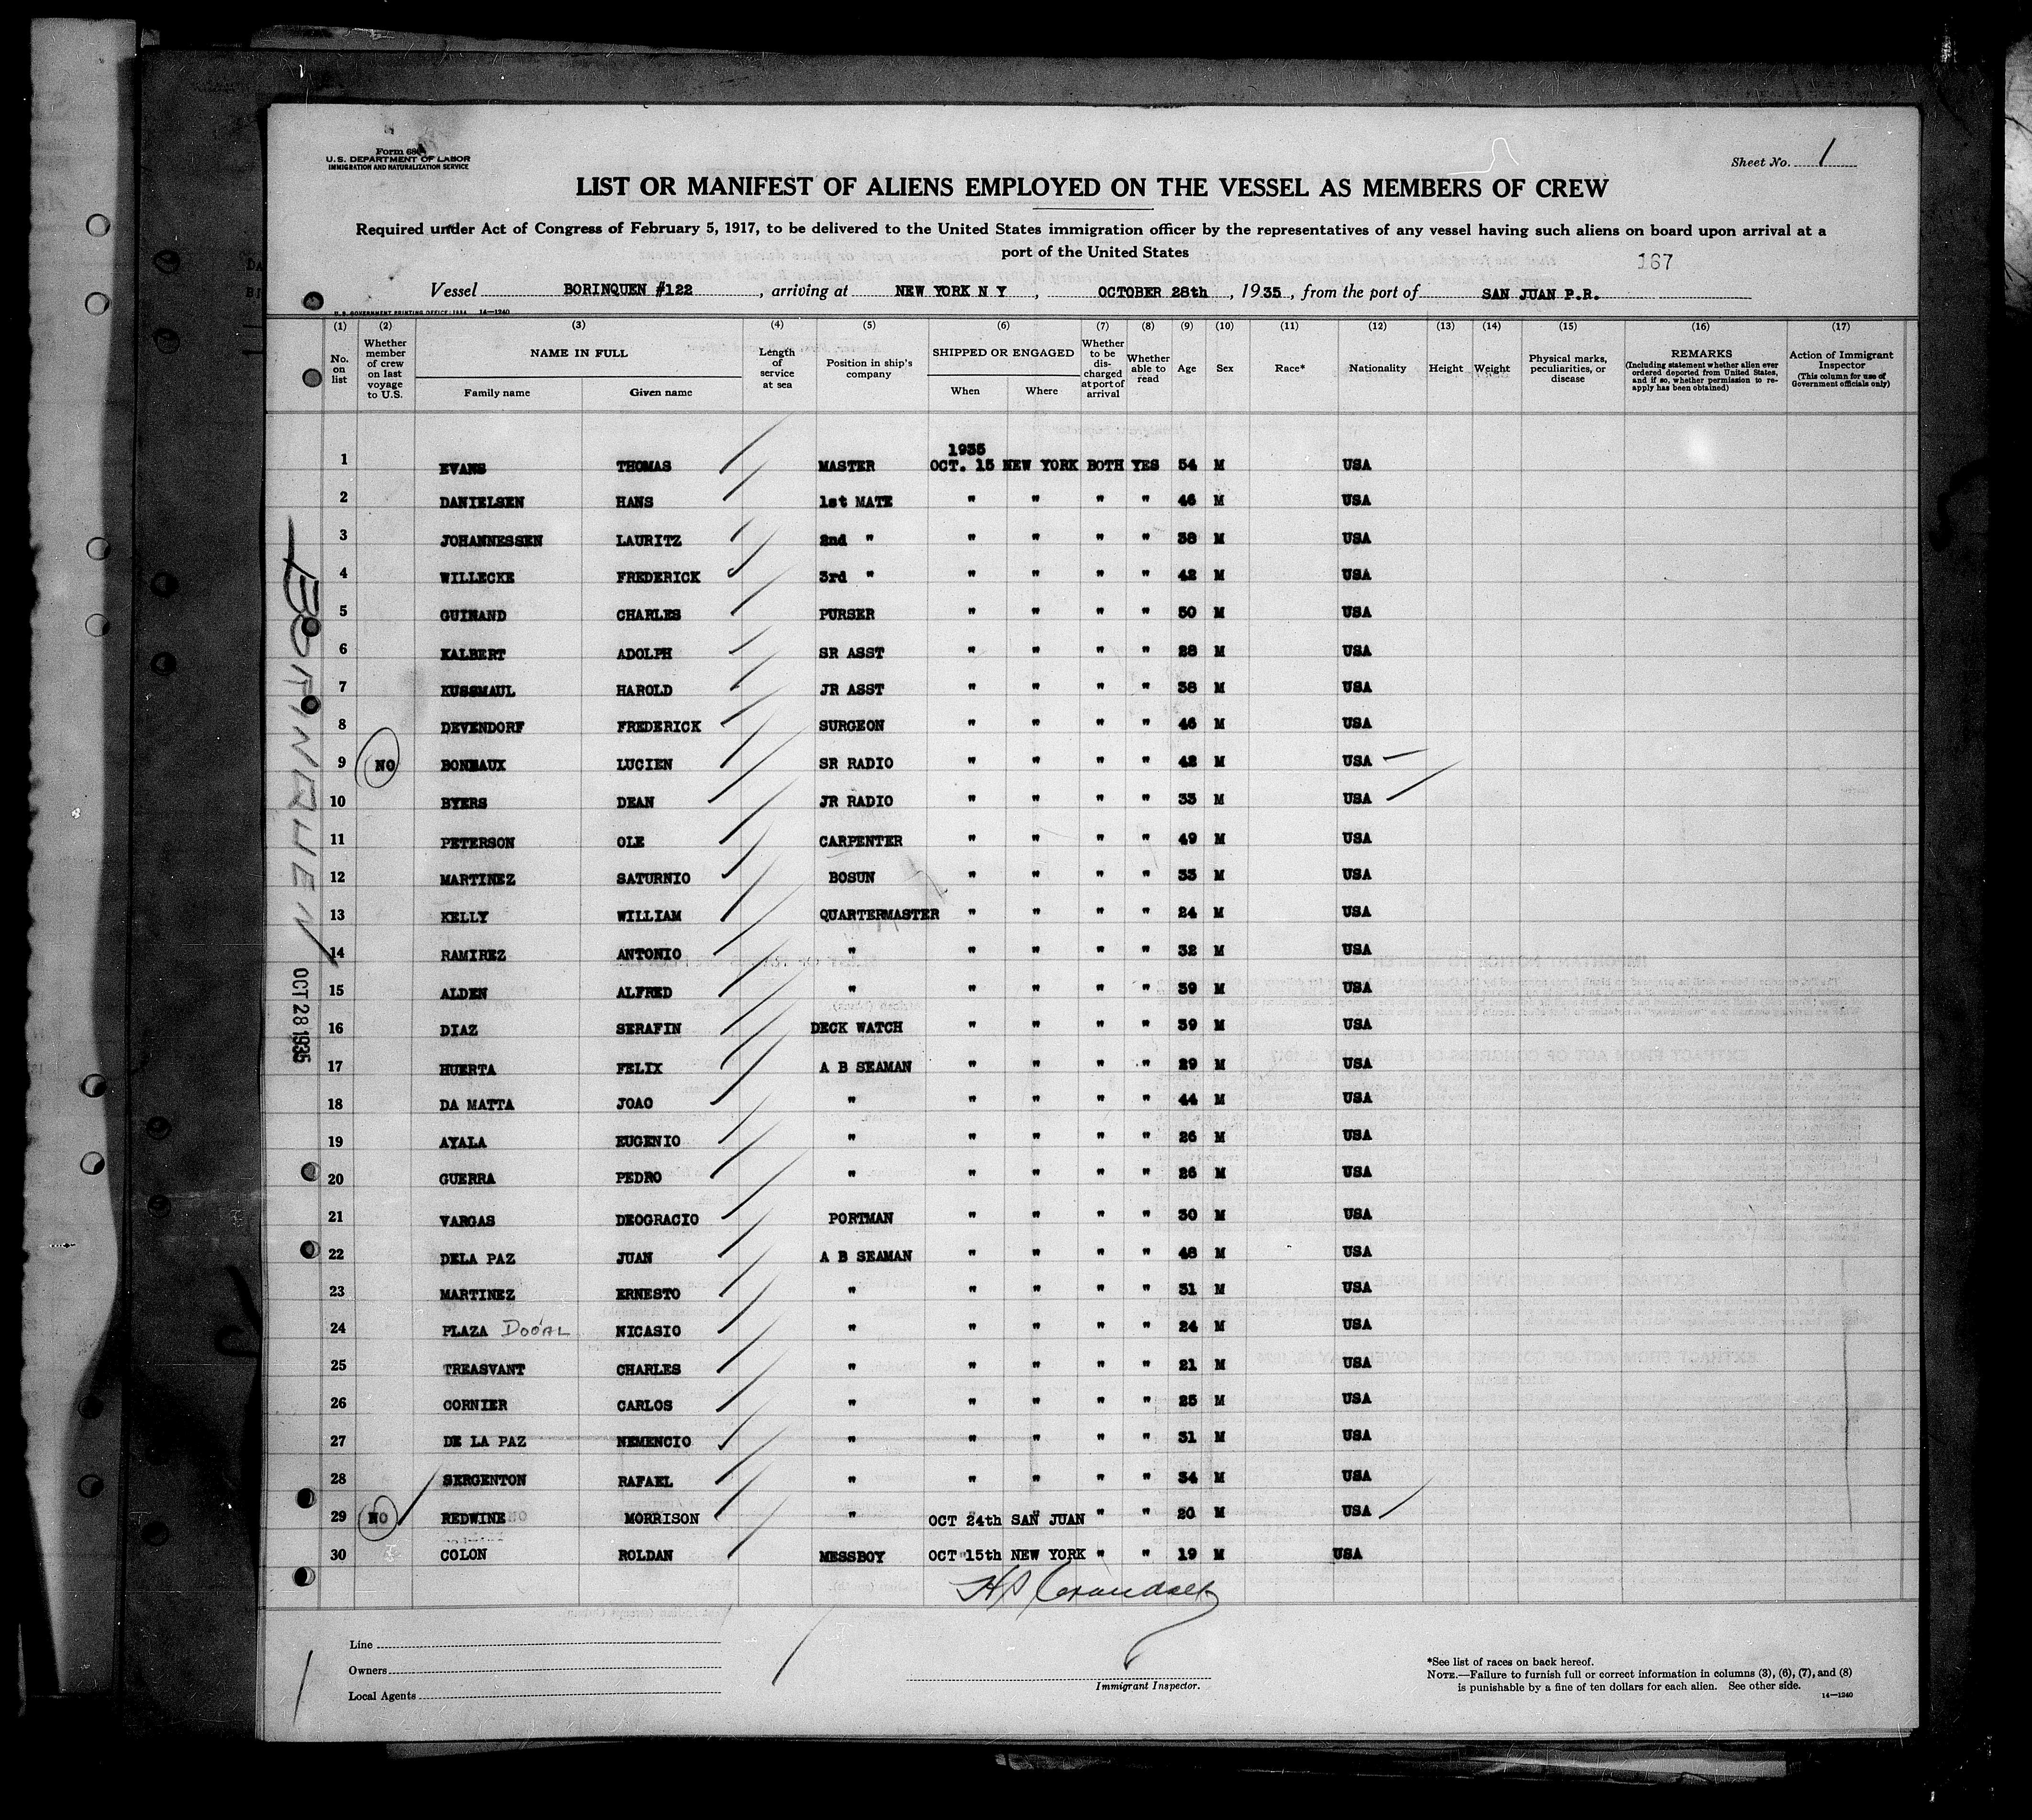 Form 680
U.S. DEPARTMENT OF LABOR
IMMIGRATION AND NATURALIZATION SERVICE
Sheet No. 1
LIST OR MANIFEST OF ALIENS EMPLOYED ON THE VESSEL AS MEMBERS OF CREW
Required under Act of Congress of February 5, 1917, to be delivered to the United States immigration officer by the representatives of any vessel having such aliens on board upon arrival at a
port of the United States
167
Vessel BORINQUEN #122, arriving at NEW YORK N Y, OCTOBER 28th, 1935, from the port of SAN JUAN P.R.
U. S. GOVERNMENT PRINTING OFFICE: 1934 14—1240
(1) (2) (3) (4) (5) (6) (7) (8) (9) (10) (11) (12) (13) (14) (15) (16) (17)
No. on list
Whether member of crew on last voyage to U.S.
NAME IN FULL
Family name Given name
Length of service at sea
Position in ship's company
SHIPPED OR ENGAGED
When Where
Whether to be discharged at port of arrival
Whether able to read
Age
Sex
Race*
Nationality
Height
Weight
Physical marks, peculiarities, or disease
REMARKS
(Including statement whether alien ever ordered deported from United States, and if so, whether permission to reapply has been obtained)
Action of Immigrant Inspector
(This column for use of Government officials only)
1935
1 EVANS THOMAS MASTER OCT. 15 NEW YORK BOTH YES 54 M USA
2 DANIELSEN HANS 1st MATE " " " " 46 M USA
3 JOHANNESSEN LAURITZ 2nd " " " " " 38 M USA
4 WILLECKE FREDERICK 3rd " " " " " 42 M USA
5 GUINAND CHARLES PURSER " " " " 50 M USA
6 KALBERT ADOLPH SR ASST " " " " 28 M USA
7 KUSSMAUL HAROLD JR ASST " " " " 38 M USA
8 DEVENDORF FREDERICK SURGEON " " " " 46 M USA
9 NO BONNAUX LUCIEN SR RADIO " " " " 42 M USA
10 BYERS DEAN JR RADIO " " " " 33 M USA
11 PETERSON OLE CARPENTER " " " " 49 M USA
12 MARTINEZ SATURNIO BOSUN " " " " 33 M USA
13 KELLY WILLIAM QUARTERMASTER " " " " 24 M USA
14 RAMIREZ ANTONIO " " " " " 32 M USA
15 ALDEN ALFRED " " " " " 39 M USA
16 DIAZ SERAFIN DECK WATCH " " " " 39 M USA
17 HUERTA FELIX A B SEAMAN " " " " 29 M USA
18 DA MATTA JOAO " " " " " 44 M USA
19 AYALA EUGENIO " " " " " 26 M USA
20 GUERRA PEDRO " " " " " 26 M USA
21 VARGAS DEOGRACIO PORTMAN " " " " 30 M USA
22 DELA PAZ JUAN A B SEAMAN " " " " 48 M USA
23 MARTINEZ ERNESTO " " " " " 31 M USA
24 PLAZA NICASIO " " " " " 24 M USA
25 TREASVANT CHARLES " " " " " 21 M USA
26 CORNIER CARLOS " " " " " 25 M USA
27 DE LA PAZ NEMENCIO " " " " " 31 M USA
28 SERGENTON RAFAEL " " " " " 34 M USA
29 NO REDWINE MORRISON " OCT 24th SAN JUAN " " 20 M USA
30 COLON ROLDAN MESSBOY OCT 15th NEW YORK " " 19 M USA
BORINQUEN
OCT 28 1935
Line
Owners
Local Agents
Immigrant Inspector.
*See list of races on back hereof.
NOTE.—Failure to furnish full or correct information in columns (3), (6), (7), and (8)
is punishable by a fine of ten dollars for each alien. See other side.
14—1240